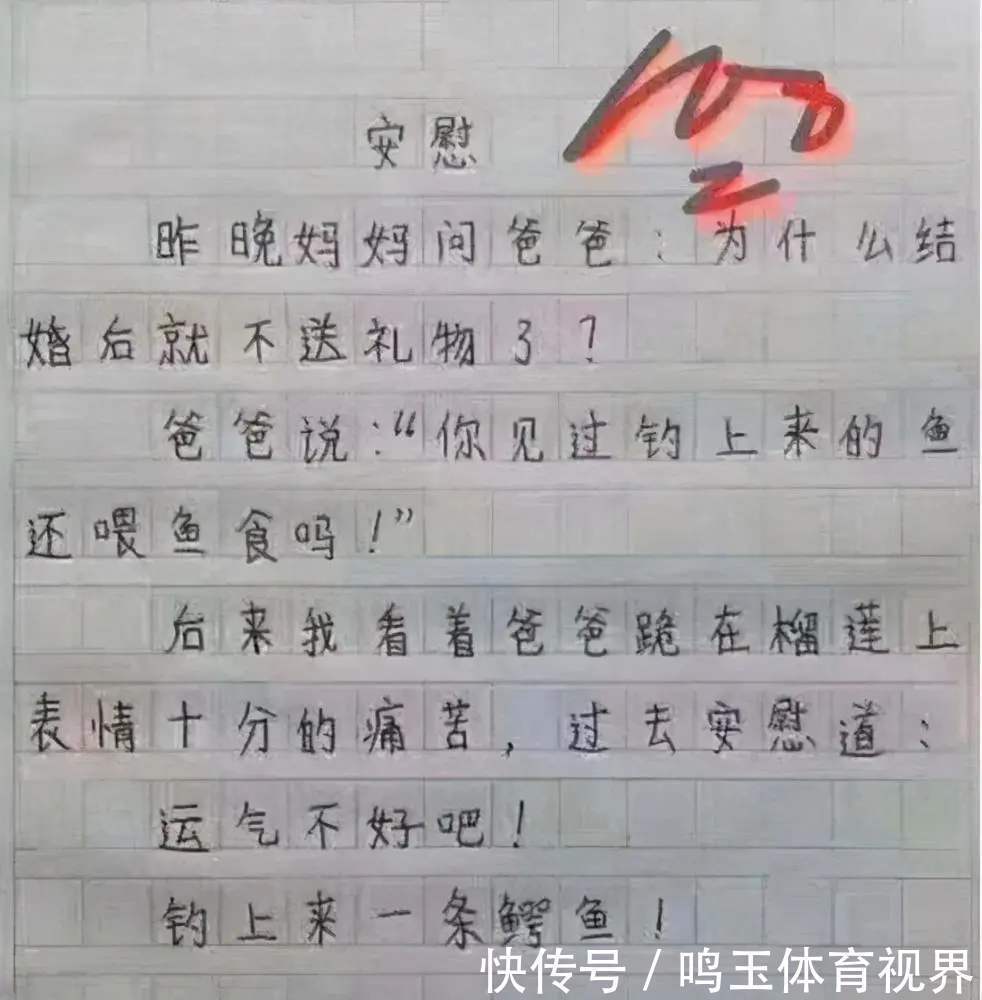 安慰
100
昨晚妈妈问爸爸:为什么结
婚后就不送礼物了?
爸爸说:“你见过钓上来的鱼
还喂鱼食吗!”
后来我看着爸爸跪在榴莲上
表情十分的痛苦,过去安慰道:
运气不好吧!
钓上来一条鳄鱼!
快传号/鸣玉体育视界